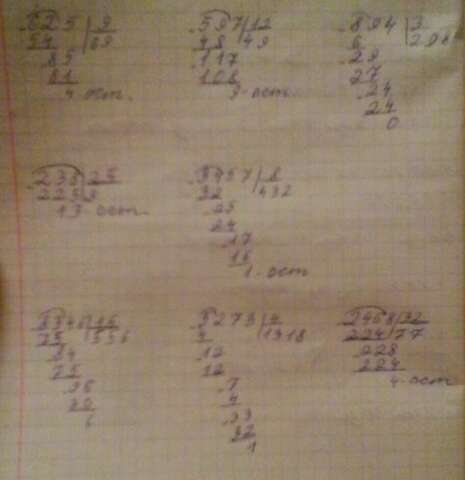 625 | 9
54 | 69
85
81
4 - ост.
597 | 12
48 | 49
117
108
9 - ост.
894 | 3
6 | 298
29
27
24
24
0
238 | 25
225 | 9
13 - ост.
3457 | 8
32 | 432
25
24
17
16
1 - ост
8346 | 15
75 | 556
84
75
96
90
6
5273 | 4
4 | 1318
12
12
7
4
33
32
1
2468 | 32
224 | 77
228
224
4 - ост